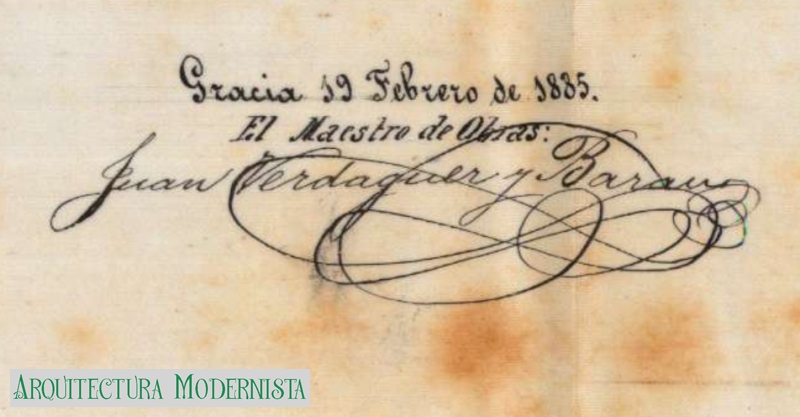 Gracia 19 Febrero de 1885.
El Maestro de Obras:
Juan Verdaguer y
Arquitectura Modernista